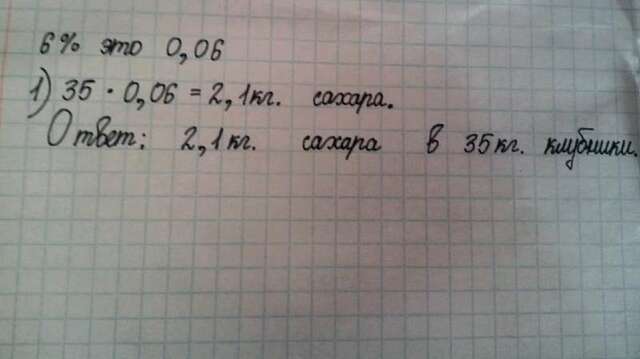 6% это 0,06
1) 35 · 0,06 = 2,1кг. сахара.
Ответ: 2,1кг. сахара в 35кг. клубники.